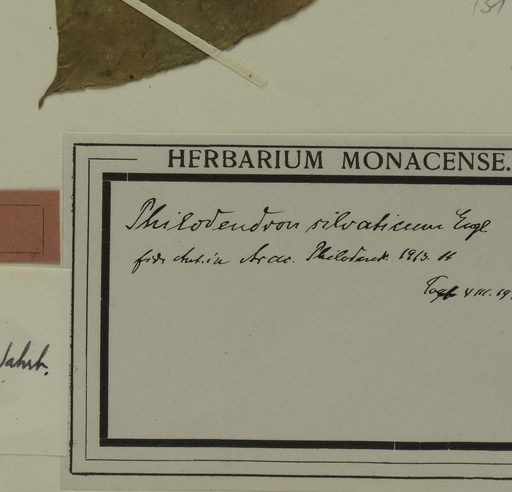 HERBARIUM MONACENSE.
Philodendron silvaticum Engl
fide Aut. in Arac. Philodend. 1913. 11
VIII. 19
Wahrh.